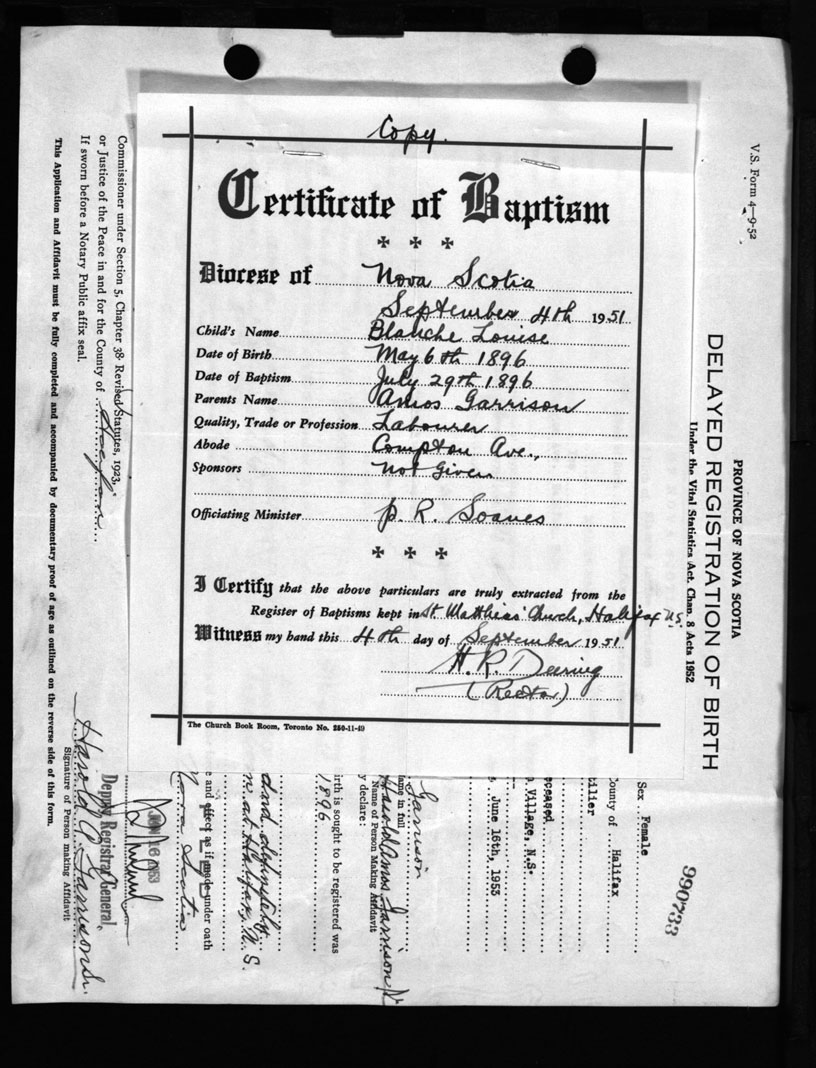 Copy.
Certificate of Baptism
Diocese of Nova Scotia
September 4th 1951
Child's Name Blanche Louise
Date of Birth May 6th 1896
Date of Baptism July 29th 1896
Parents Name Amos Garrison
Quality, Trade or Profession Labourer
Abode Compton Ave.,
Sponsors Not Given
Officiating Minister P. R. Soanes
I Certify that the above particulars are truly extracted from the
Register of Baptisms kept in St. Matthias' Church, Halifax N.S.
Witness my hand this 4th day of September 1951
H. R. Deering
(Rector)
The Church Book Room, Toronto No. 250-11-49
V.S. Form 4-9-52
PROVINCE OF NOVA SCOTIA
DELAYED REGISTRATION OF BIRTH
Under the Vital Statistics Act. Chap. 8 Acts 1952
990733
Sex Female
County of Halifax
tilier
eceased
Village, N.S.
June 16th, 1953
Garrison
ame in full
Harold Amos Garrison
Name of Person Making Affidavit
y declare:
irth is sought to be registered was
1896
and definitely
at Halifax, N.S.
e and effect as if made under oath
Nova Scotia
JUN 16 1953
Deputy Registrar General
Harold A. Garrison Sr.
Signature of Person making Affidavit
Commissioner under Section 5, Chapter 38 Revised Statutes, 1923,
or Justice of the Peace in and for the County of Halifax
If sworn before a Notary Public affix seal.
This Application and Affidavit must be fully completed and accompanied by documentary proof of age as outlined on the reverse side of this form.